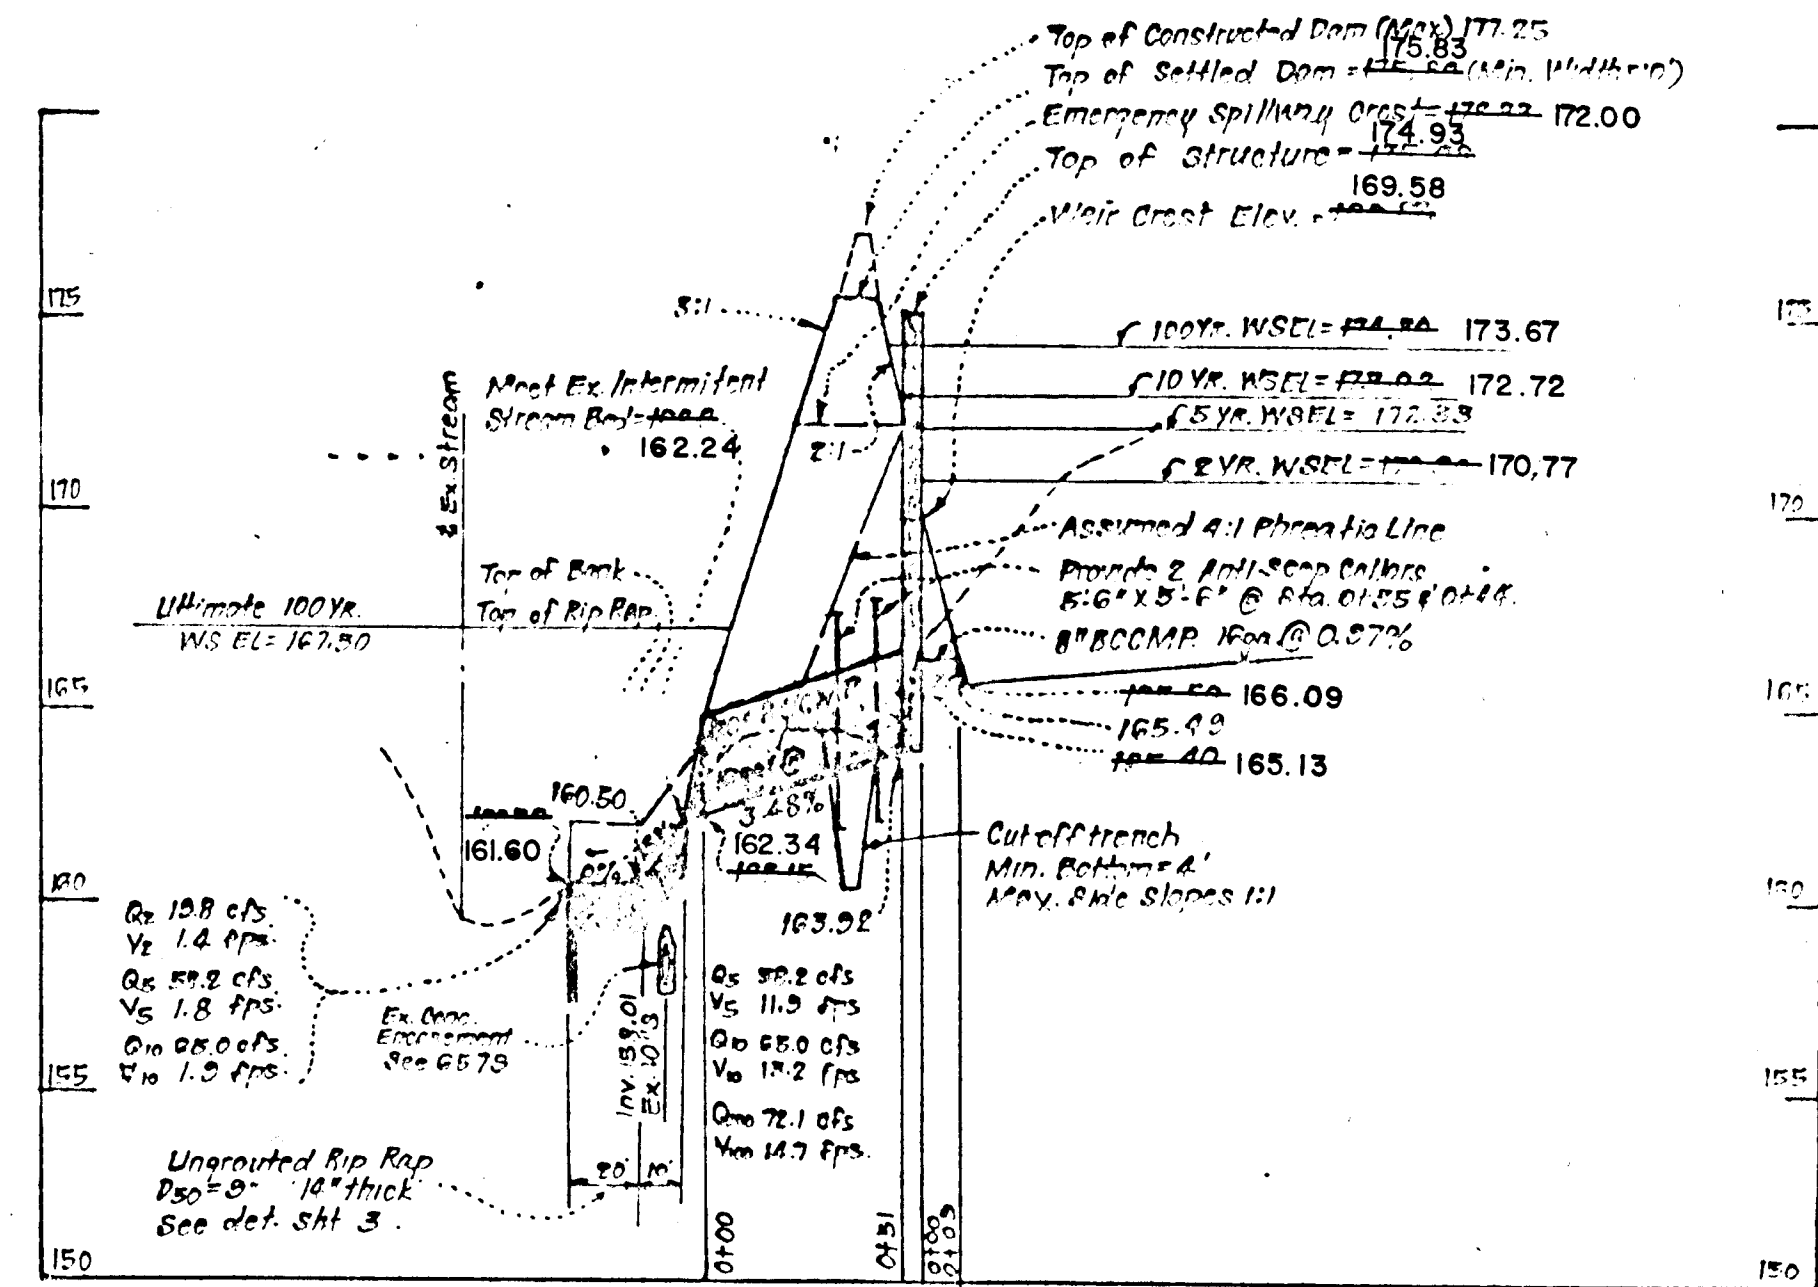 Top of Constructed Dam (Max) 177.25
175.83
Top of Settled Dam = (Min. Width=10')
Emergency Spillway Crest= 172.00
174.93
Top of Structure =
169.58
Weir Crest Elev. =
175
175
3:1
100 Yr. WSEL= 173.67
10 YR. WSEL= 172.72
5 YR. WSEL= 172.33
2 YR. WSEL= 170.77
Meet Ex. Intermitent
Stream Bed=
162.24
2:1
℄ Ex. Stream
170
170
Assumed 4:1 Phreatic Line
Provide 2 Anti-Seep Collars
5'-6" X 5'-6" @ Sta. 0+55 &
8" BCCMP @ 0.97%
Top of Bank
Top of Rip Rap.
Ultimate 100 YR.
WS EL= 167.30
165
165
166.09
165.49
165.13
160.50
161.60
0%
3.48%
162.34
163.92
Cutoff trench
Min. Bottom = 4'
Max. Side Slopes 1:1
160
160
Q2 19.8 cfs
V2 1.4 fps.
Q5 58.2 cfs
V5 1.8 fps.
Q10 65.0 cfs
V10 1.9 fps.
Ex. Conc.
Encasement
See 6579
Inv. 159.01
Q5 58.2 cfs
V5 11.9 fps
Q10 65.0 cfs
V10 13.2 fps
Q100 72.1 cfs
V100 14.7 fps.
155
155
Ungrouted Rip Rap
D50=9" 14" thick
See det. sht 3.
20' 10'
0+00
0+51
0+00
0+03
150
150